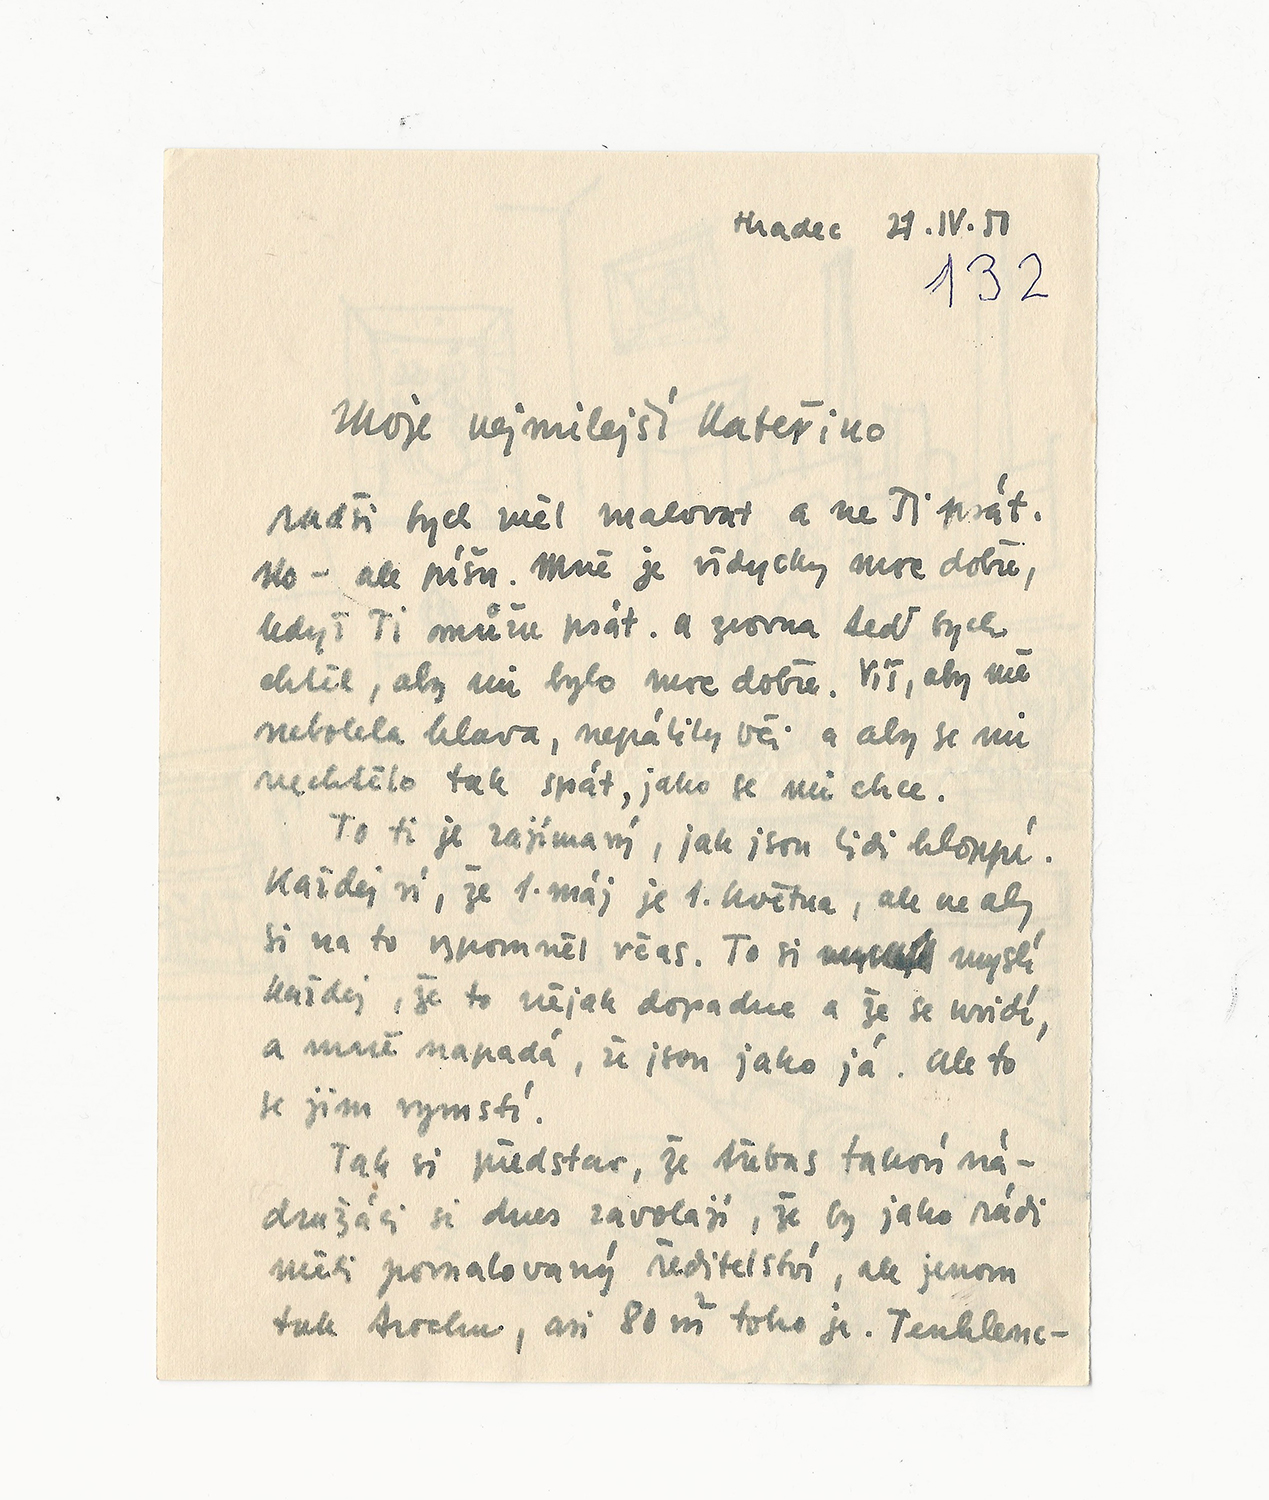 Hradec 27.IV.51
132
Moje nejmilejší Kateřino
radši bych měl malovat a ne Ti psát.
No – ale píšu. Mně je vždycky moc dobře,
když Ti můžu psát. A zrovna teď bych
chtěl, aby mi bylo moc dobře. Víš, aby mě
nebolela hlava, nepálily oči a aby se mi
nechtělo tak spát, jako se mi chce.
To ti je zajímavý, jak jsou lidi hloupí.
Každej ví, že 1. máj je 1. května, ale ne aby
si na to vzpomněl včas. To si myslí
každej, že to nějak dopadne a že se uvidí,
a mně napadá, že jsou jako já. Ale to
se jim vymstí.
Tak si představ, že třebas takoví ná-
dražáci si dnes zavolají, že by jako rádi
měli pomalovaný ředitelství, ale jenom
tak trochu, asi 80 m² toho je. Tenhlenc-